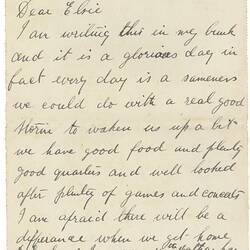 Dear Elsie
I am writing this in my bunk
and it is a glorious day in
fact every day is a sameness
we could do with a real good
storm to waken us up a bit
we have good food and plenty
good quarters and well looked
after plenty of games and concerts
I am afraid there will be a
differance when we get home